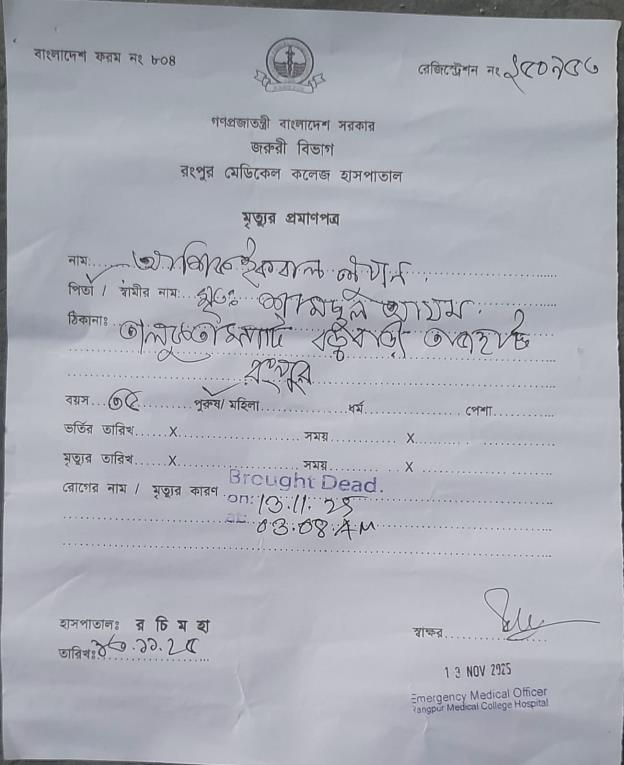 বাংলাদেশ ফরম নং ৮০৪
রেজিস্ট্রেশন নং
গণপ্রজাতন্ত্রী বাংলাদেশ সরকার
জরুরী বিভাগ
রংপুর মেডিকেল কলেজ হাসপাতাল
মৃত্যুর প্রমাণপত্র
নাম: ইকবাল
পিতা / স্বামীর নাম: মৃতঃ আলম
ঠিকানাঃ
রংপুর
বয়স ৩৫ পুরুষ/ মহিলা ধর্ম পেশা
ভর্তির তারিখ X সময় X
মৃত্যুর তারিখ X সময় X
রোগের নাম / মৃত্যুর কারণ Brought Dead.
on: 13.11.25
at: 03:08 AM
হাসপাতালঃ র চি ম হা
তারিখঃ ১৩.১১.২৫
স্বাক্ষর
13 NOV 2025
Emergency Medical Officer
Rangpur Medical College Hospital